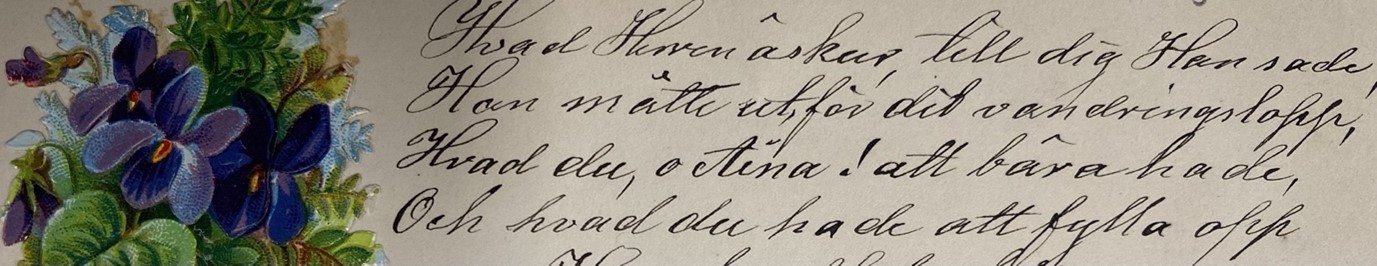 Hvad Herren äskar, till dig Han sade,
Han mätte ut för dit vandringslopp,
Hvad du, o Stina! att bära hade,
Och hvad du hade att fylla opp